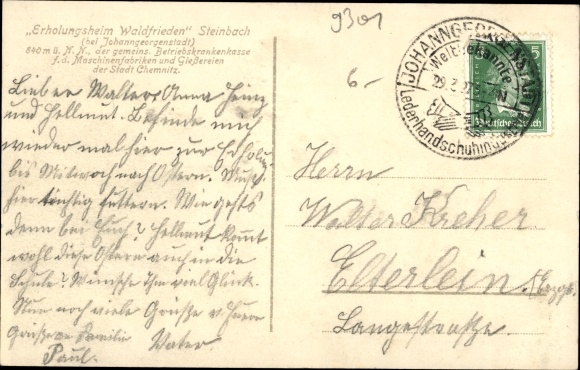 „Erholungsheim Waldfrieden" Steinbach
(bei Johanngeorgenstadt)
840 m ü. N. N., der gemeins. Betriebskrankenkasse
f. d. Maschinenfabriken und Gießereien
der Stadt Chemnitz.
Lieber Walter Anna Heinz
und Hellmut. Befinde mich
wieder mal hier zur Erholung
bis Mittwoch nach Ostern. Muß
hier tüchtig futtern. Wie gehts
denn bei Euch? Hellmut kommt
wohl diese Ostern auch in die
Schule? Wünsche Ihm viel Glück.
Nun noch viele Grüße v. Eurem
Grüße an Familie Vater.
Paul.
9301
6-
JOHANNGEORGENSTADT
Weltbekannte
29.3.27
Lederhandschuhindustrie
5
Deutsches Reich
Herrn
Walter Kreher
Elterlein. (Erzgb.
Langestraße.